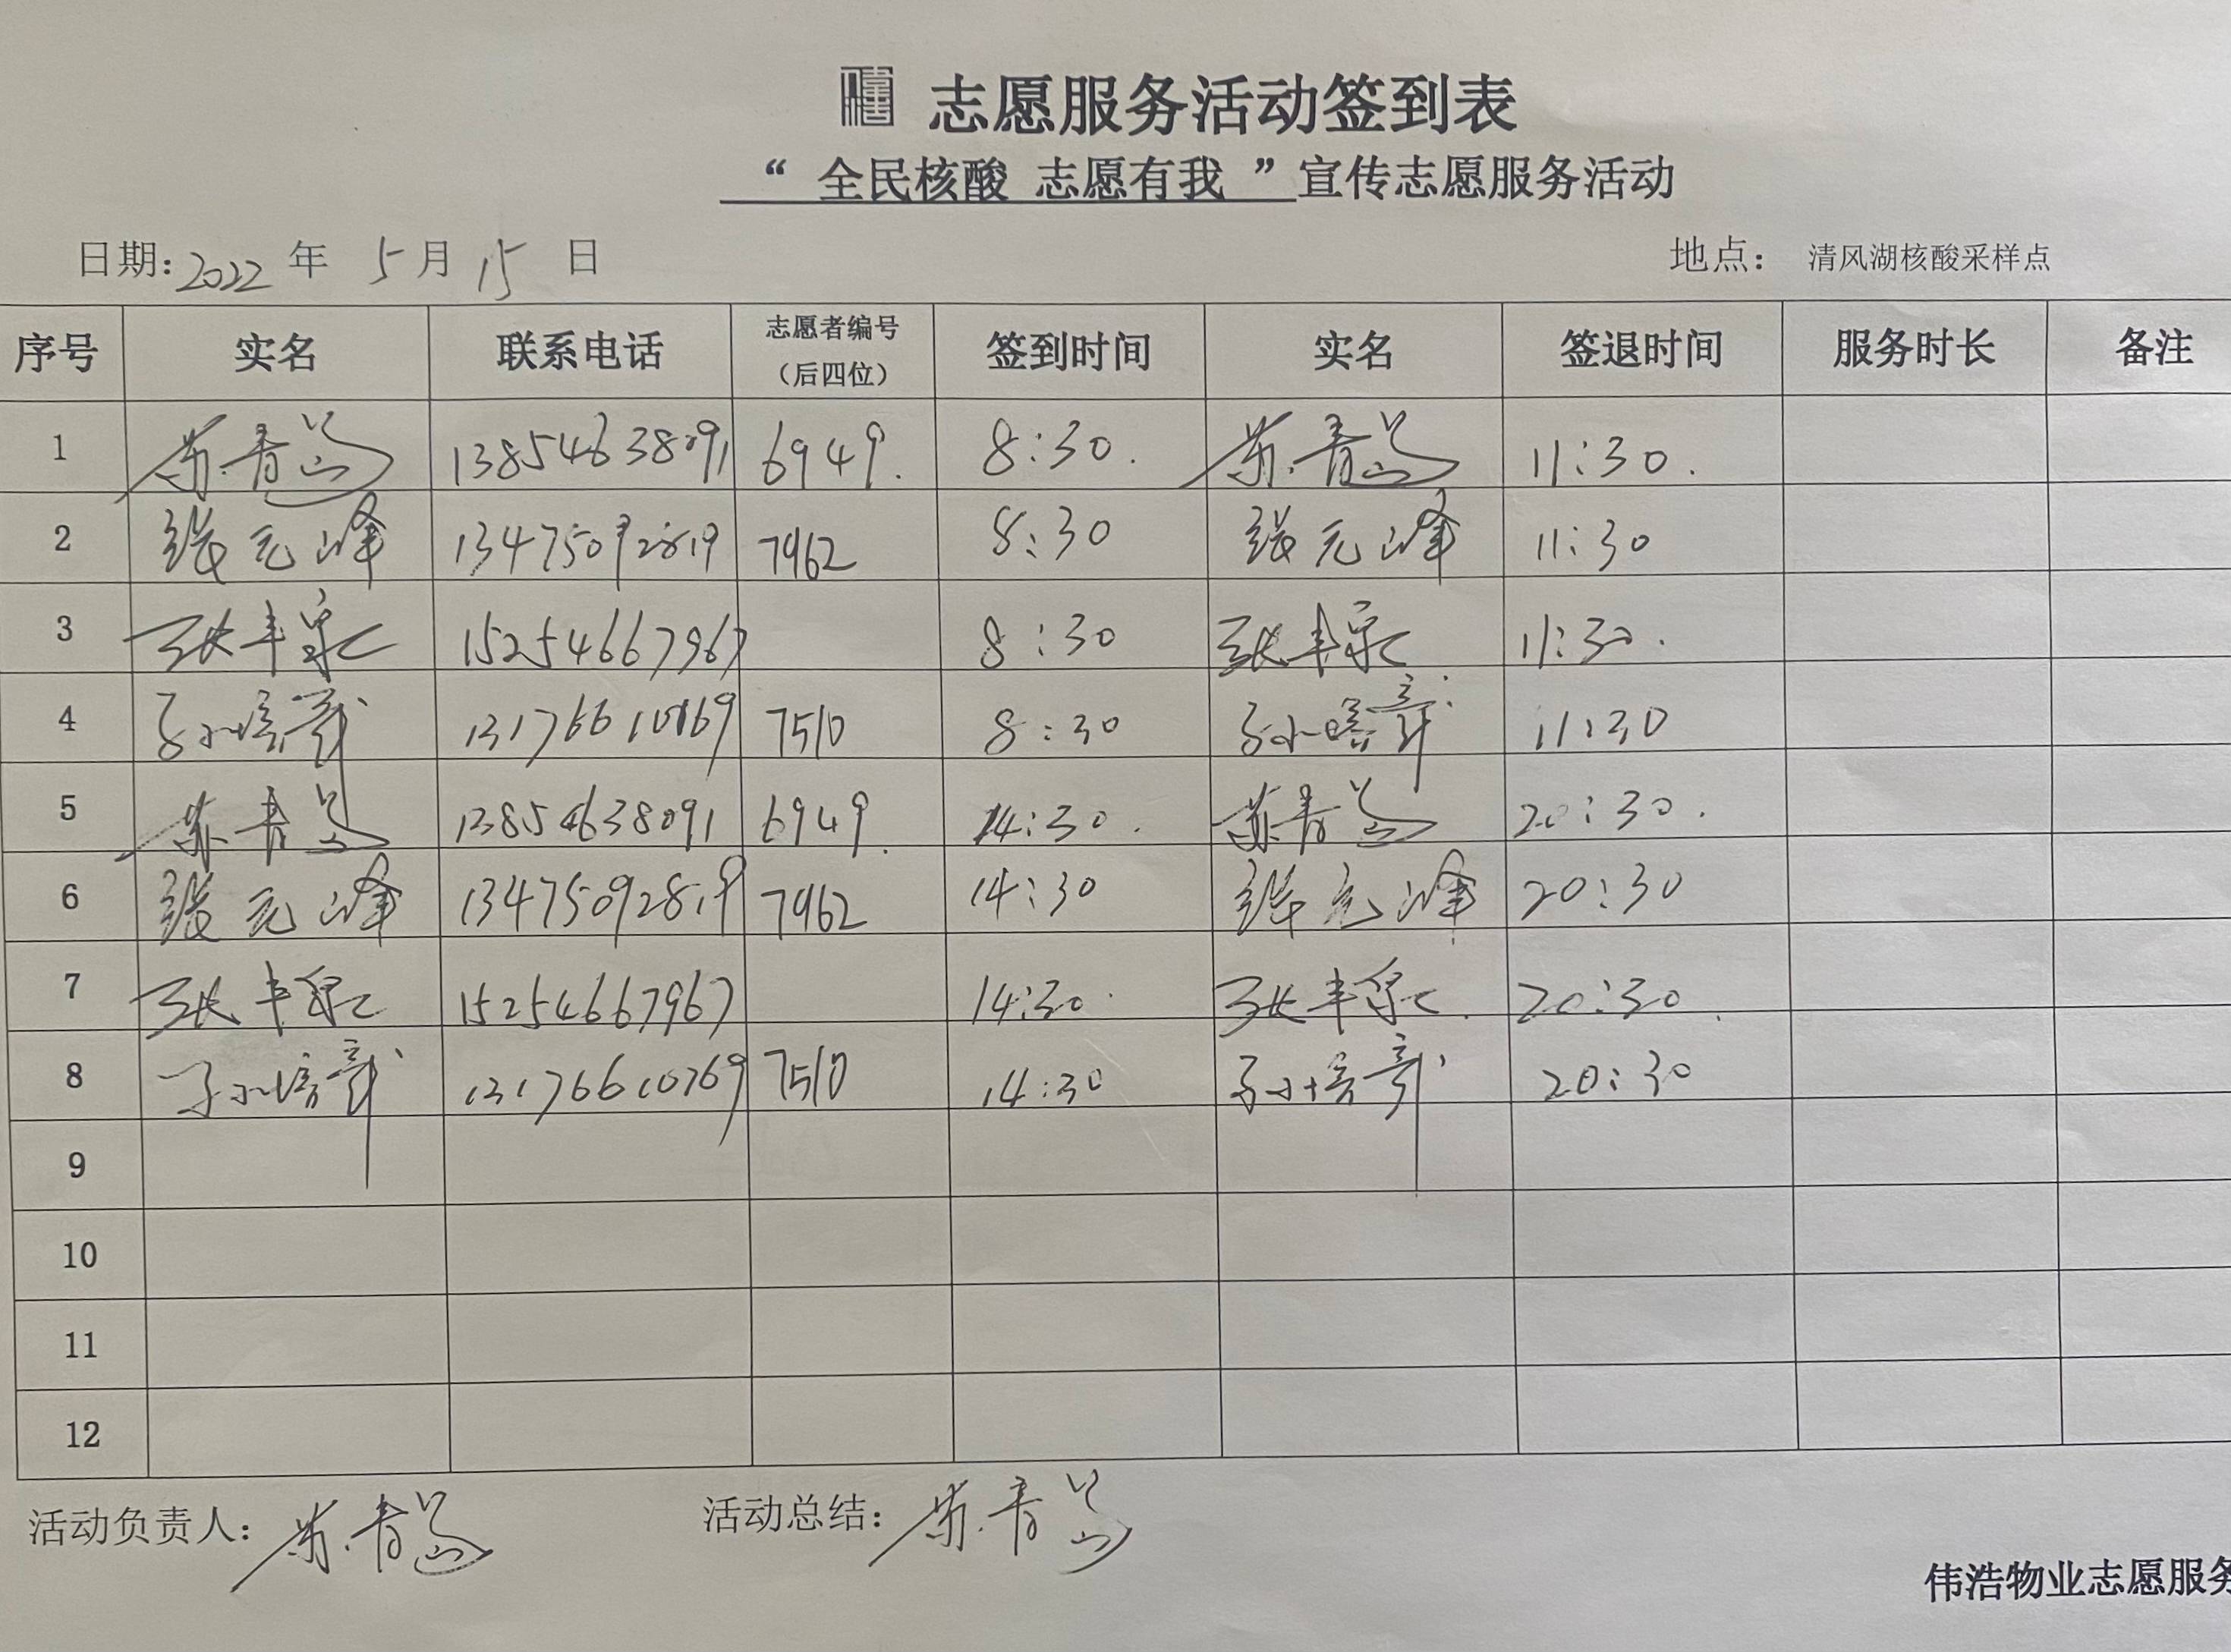 志愿服务活动签到表
“ 全民核酸 志愿有我 ”宣传志愿服务活动
日期:2022 年 5月 15 日 地点: 清风湖核酸采样点
序号 实名 联系电话 志愿者编号（后四位） 签到时间 实名 签退时间 服务时长 备注
1 苏青岛 13854638091 6949. 8:30. 苏青岛 11:30.
2 张元峰 13475092819 7962 8:30 张元峰 11:30
3 张丰泉 15254667967 8:30 张丰泉 11:30.
4 孙培彰 13176610769 7510 8:30 孙培彰 11:30
5 苏青岛 13854638091 6949. 14:30. 苏青岛 20:30.
6 张元峰 13475092819 7962 14:30 张元峰 20:30
7 张丰泉 15254667967 14:30. 张丰泉. 20:30.
8 孙培彰 13176610769 7510 14:30 孙培彰 20:30
9
10
11
12
活动负责人: 苏青岛 活动总结: 苏青岛
伟浩物业志愿服务